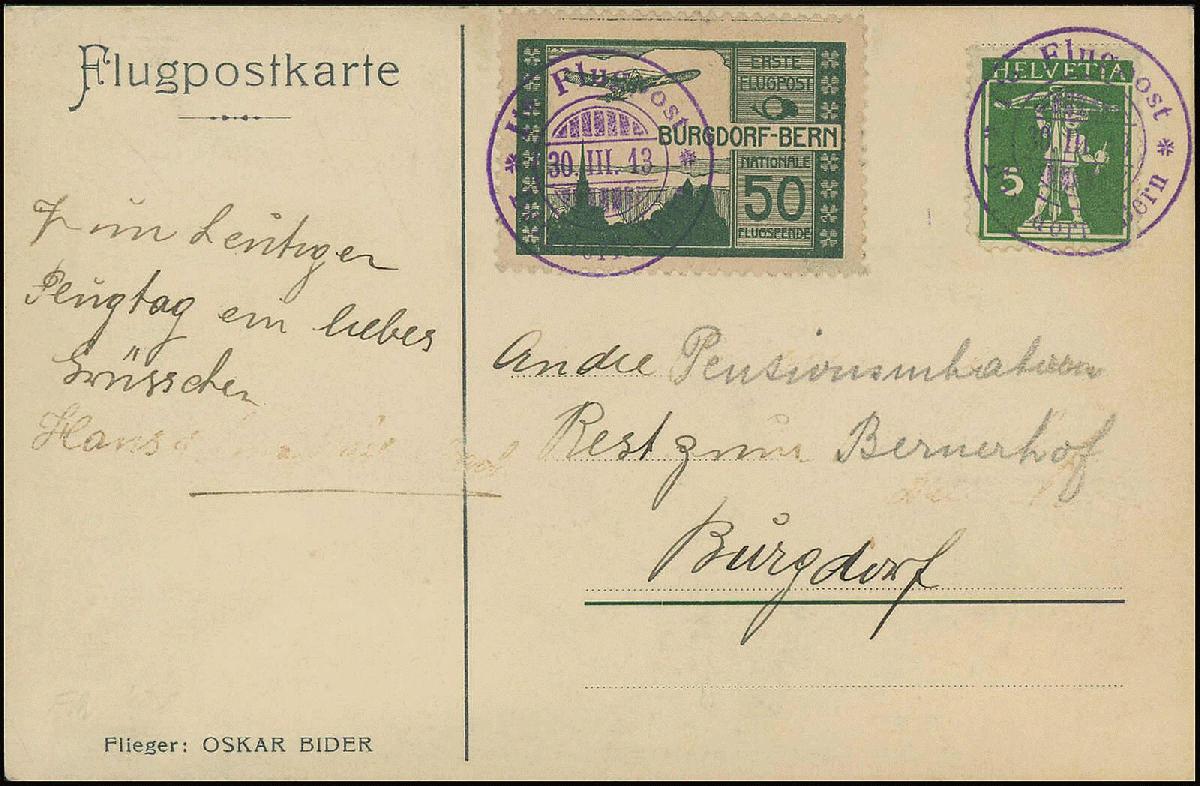 Flugpostkarte
ERSTE
FLUGPOST
BURGDORF-BERN
NATIONALE
50
FLUGSPENDE
Flugpost
30. III. 13
HELVETIA
5
Flugpost
30. III.
Bern
Zum heutigen
Flugtag ein liebes
Grüsschen
Hans
An die
Rest zum Bernerhof
Burgdorf
Flieger: OSKAR BIDER